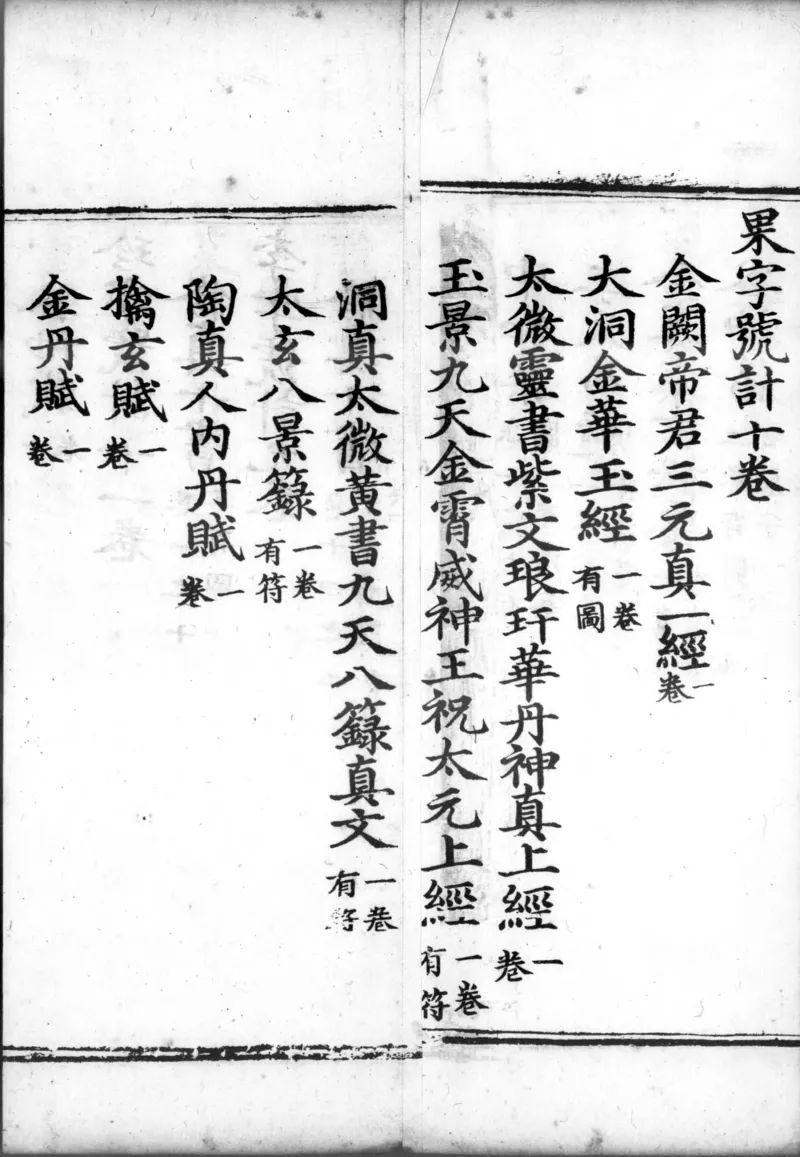 果字號計十卷
金闕帝君三元真一經一卷
大洞金華玉經一卷有圖
太微靈書紫文琅玕華丹神真上經一卷
玉景九天金霄威神王祝太元上經一卷有符
洞真太微黃書九天八籙真文一卷有符
太玄八景籙一卷有符
陶真人內丹賦一卷
擒玄賦一卷
金丹賦一卷